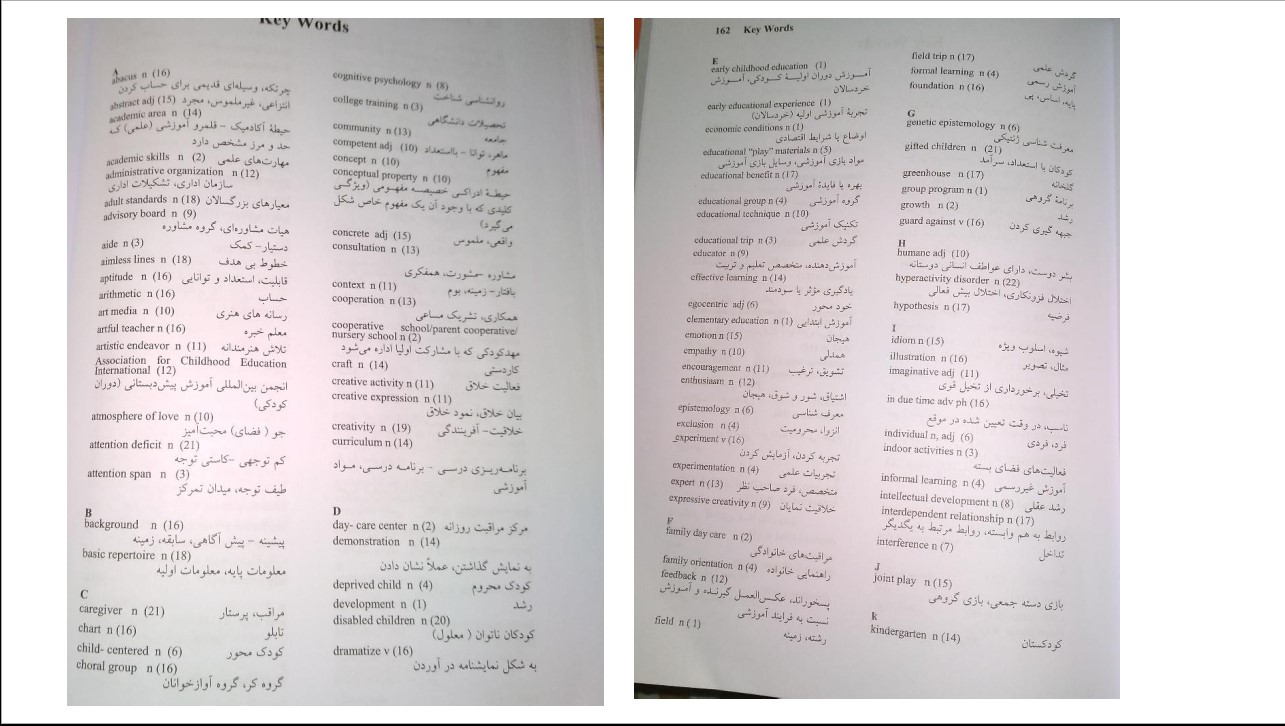 Key Words
A
abacus n (16)
چرتکه، وسیله‌ای قدیمی برای حساب کردن
abstract adj (15) انتزاعی، غیرملموس، مجرد
academic area n (14)
حیطهٔ آکادمیک – قلمرو آموزشی (علمی) که
حد و مرز مشخص دارد
academic skills n (2) مهارت‌های علمی
administrative organization n (12)
سازمان اداری، تشکیلات اداری
adult standards n (18) معیارهای بزرگسالان
advisory board n (9)
هیات مشاوره‌ای، گروه مشاوره
aide n (3) دستیار– کمک
aimless lines n (18) خطوط بی هدف
aptitude n (16) قابلیت، استعداد و توانایی
arithmetic n (16) حساب
art media n (10) رسانه های هنری
artful teacher n (16) معلم خبره
artistic endeavor n (11) تلاش هنرمندانه
Association for Childhood Education
International (12)
انجمن بین‌المللی آموزش پیش‌دبستانی (دوران
کودکی)
atmosphere of love n (10)
جو ( فضای) محبت‌آمیز
attention deficit n (21)
کم توجهی –کاستی توجه
attention span n (3)
طیف توجه، میدان تمرکز
B
background n (16)
پیشینه – پیش آگاهی، سابقه، زمینه
basic repertoire n (18)
معلومات پایه، معلومات اولیه
C
caregiver n (21) مراقب، پرستار
chart n (16) تابلو
child- centered n (6) کودک محور
choral group n (16)
گروه کر، گروه آوازخوانان
cognitive psychology n (8)
روانشناسی شناخت
college training n (3)
تحصیلات دانشگاهی
community n (13) جامعه
competent adj (10) ماهر، توانا – بااستعداد
concept n (10) مفهوم
conceptual property n (10)
حیطهٔ ادراکی خصیصه مفهومی (ویژگی
کلیدی که با وجود آن یک مفهوم خاص شکل
می‌گیرد)
concrete adj (15) واقعی، ملموس
consultation n (13)
مشاوره –مشورت، همفکری
context n (11) بافتار– زمینه، بوم
cooperation n (13)
همکاری، تشریک مساعی
cooperative school/parent cooperative/
nursery school n (2)
مهدکودکی که با مشارکت اولیا اداره می‌شود
craft n (14) کاردستی
creative activity n (11) فعالیت خلاق
creative expression n (11)
بیان خلاق، نمود خلاق
creativity n (19) خلاقیت– آفرینندگی
curriculum n (14)
برنامه‌ریزی درسی – برنامه درسی، مواد
آموزشی
D
day- care center n (2) مرکز مراقبت روزانه
demonstration n (14)
به نمایش گذاشتن، عملاً نشان دادن
deprived child n (4) کودک محروم
development n (1) رشد
disabled children n (20)
کودکان ناتوان ( معلول)
dramatize v (16)
به شکل نمایشنامه در آوردن
162 Key Words
E
early childhood education (1)
آموزش دوران اولیهٔ کودکی، آموزش
خردسالان
early educational experience (1)
تجربهٔ آموزشی اولیه (خردسالان)
economic conditions n (1)
اوضاع یا شرایط اقتصادی
educational “play” materials n (5)
مواد بازی آموزشی، وسایل بازی آموزشی
educational benefit n (17)
بهره یا فایدهٔ آموزشی
educational group n (4) گروه آموزشی
educational technique n (10)
تکنیک آموزشی
educational trip n (3) گردش علمی
educator n (9)
آموزش‌دهنده، متخصص تعلیم و تربیت
effective learning n (14)
یادگیری مؤثر یا سودمند
egocentric adj (6) خود محور
elementary education n (1) آموزش ابتدایی
emotion n (15) هیجان
empathy n (10) همدلی
encouragement n (11) تشویق، ترغیب
enthusiasm n (12)
اشتیاق، شور و شوق، هیجان
epistemology n (6) معرف شناسی
exclusion n (4) انزوا، محرومیت
experiment v (16)
تجربه کردن، آزمایش کردن
experimentation n (4) تجربیات علمی
expert n (13) متخصص، فرد صاحب نظر
expressive creativity n (9) خلاقیت نمایان
F
family day care n (2)
مراقبت‌های خانوادگی
family orientation n (4) راهنمایی خانواده
feedback n (12)
پسخوراند، عکس‌العمل گیرنده و آموزش
نسبت به فرایند آموزشی
field n (1) رشته، زمینه
field trip n (17) گردش علمی
formal learning n (4) آموزش رسمی
foundation n (16) پایه، اساس، پی
G
genetic epistemology n (6)
معرفت شناسی ژنتیکی
gifted children n (21)
کودکان با استعداد، سرآمد
greenhouse n (17) گلخانه
group program n (1) برنامهٔ گروهی
growth n (2) رشد
guard against v (16) جبهه گیری کردن
H
humane adj (10)
بشر دوست، دارای عواطف انسانی دوستانه
hyperactivity disorder n (22)
اختلال فزونکاری، اختلال بیش فعالی
hypothesis n (17) فرضیه
I
idiom n (15) شیوه، اسلوب ویژه
illustration n (16) مثال، تصویر
imaginative adj (11)
تخیلی، برخورداری از تخیل قوی
in due time adv ph (16)
تاسب، در وقت تعیین شده در موقع
individual n, adj (6) فرد، فردی
indoor activities n (3)
فعالیت‌های فضای بسته
informal learning n (4) آموزش غیررسمی
intellectual development n (8) رشد عقلی
interdependent relationship n (17)
روابط به هم وابسته، روابط مرتبط به یگدیگر
interference n (7) تداخل
J
joint play n (15)
بازی دسته جمعی، بازی گروهی
k
kindergarten n (14) کودکستان